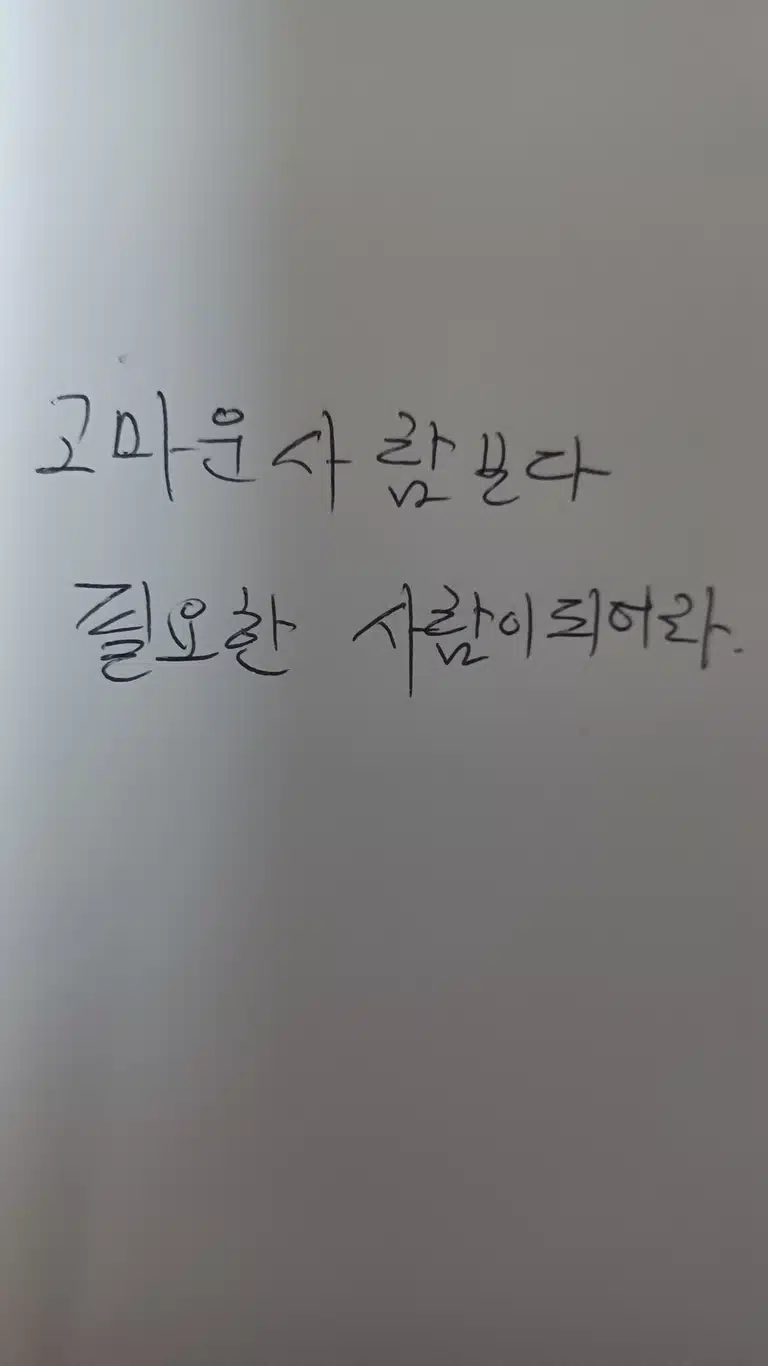 고마운 사람보다
필요한 사람이 되어라.